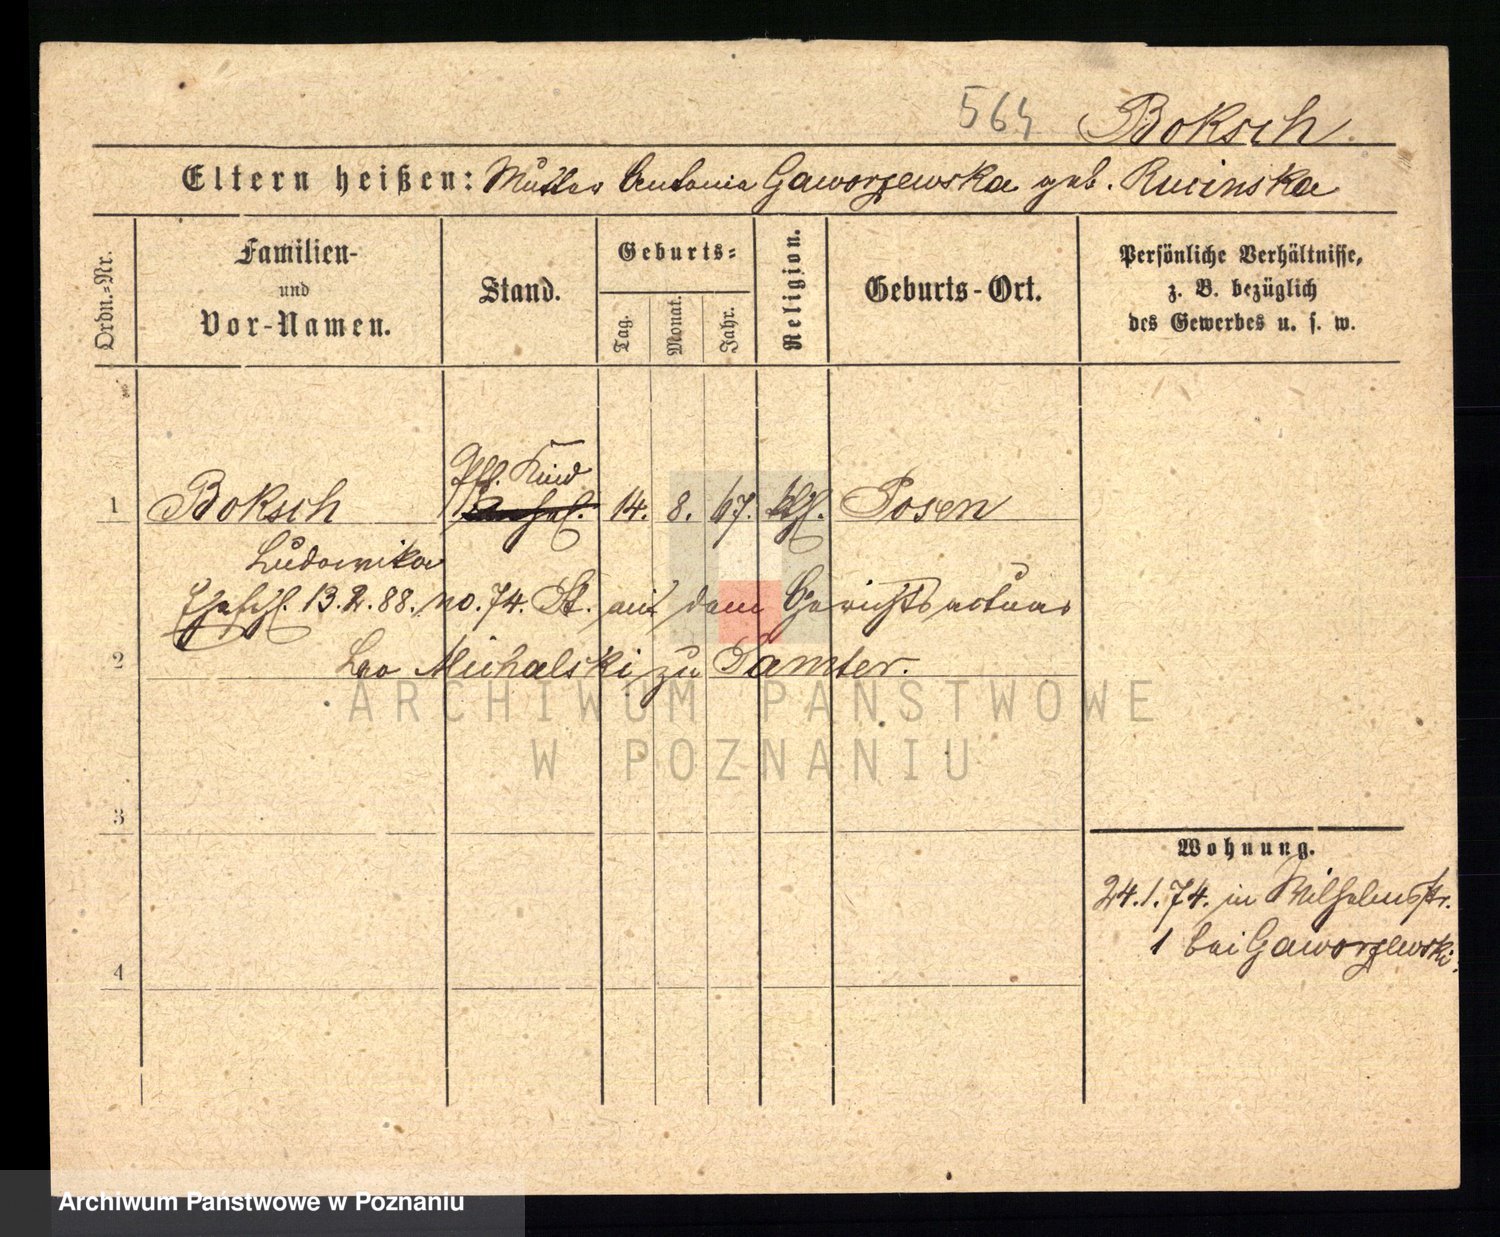 564 Boksch
Eltern heißen: Mutter Antonia Gaworzewska geb. Rucinska
Ordn.-Nr.
Familien-
und
Vor-Namen.
Stand.
Geburts-
Tag.
Monat.
Jahr.
Religion.
Geburts-Ort.
Persönliche Verhältnisse,
z. B. bezüglich
des Gewerbes u. s. w.
Pfl. Kind
1 Boksch 14. 8. 67. kth. Posen
Ludowika
13.2.88. no. 74. St. mit dem Gerichtsactuar
2 Leo Michalski zu Samter.
ARCHIWUM PAŃSTWOWE
W POZNANIU
3
Wohnung.
24.1.74. in Wilhelmstr.
1 bei Gaworzewski.
4
Archiwum Państwowe w Poznaniu